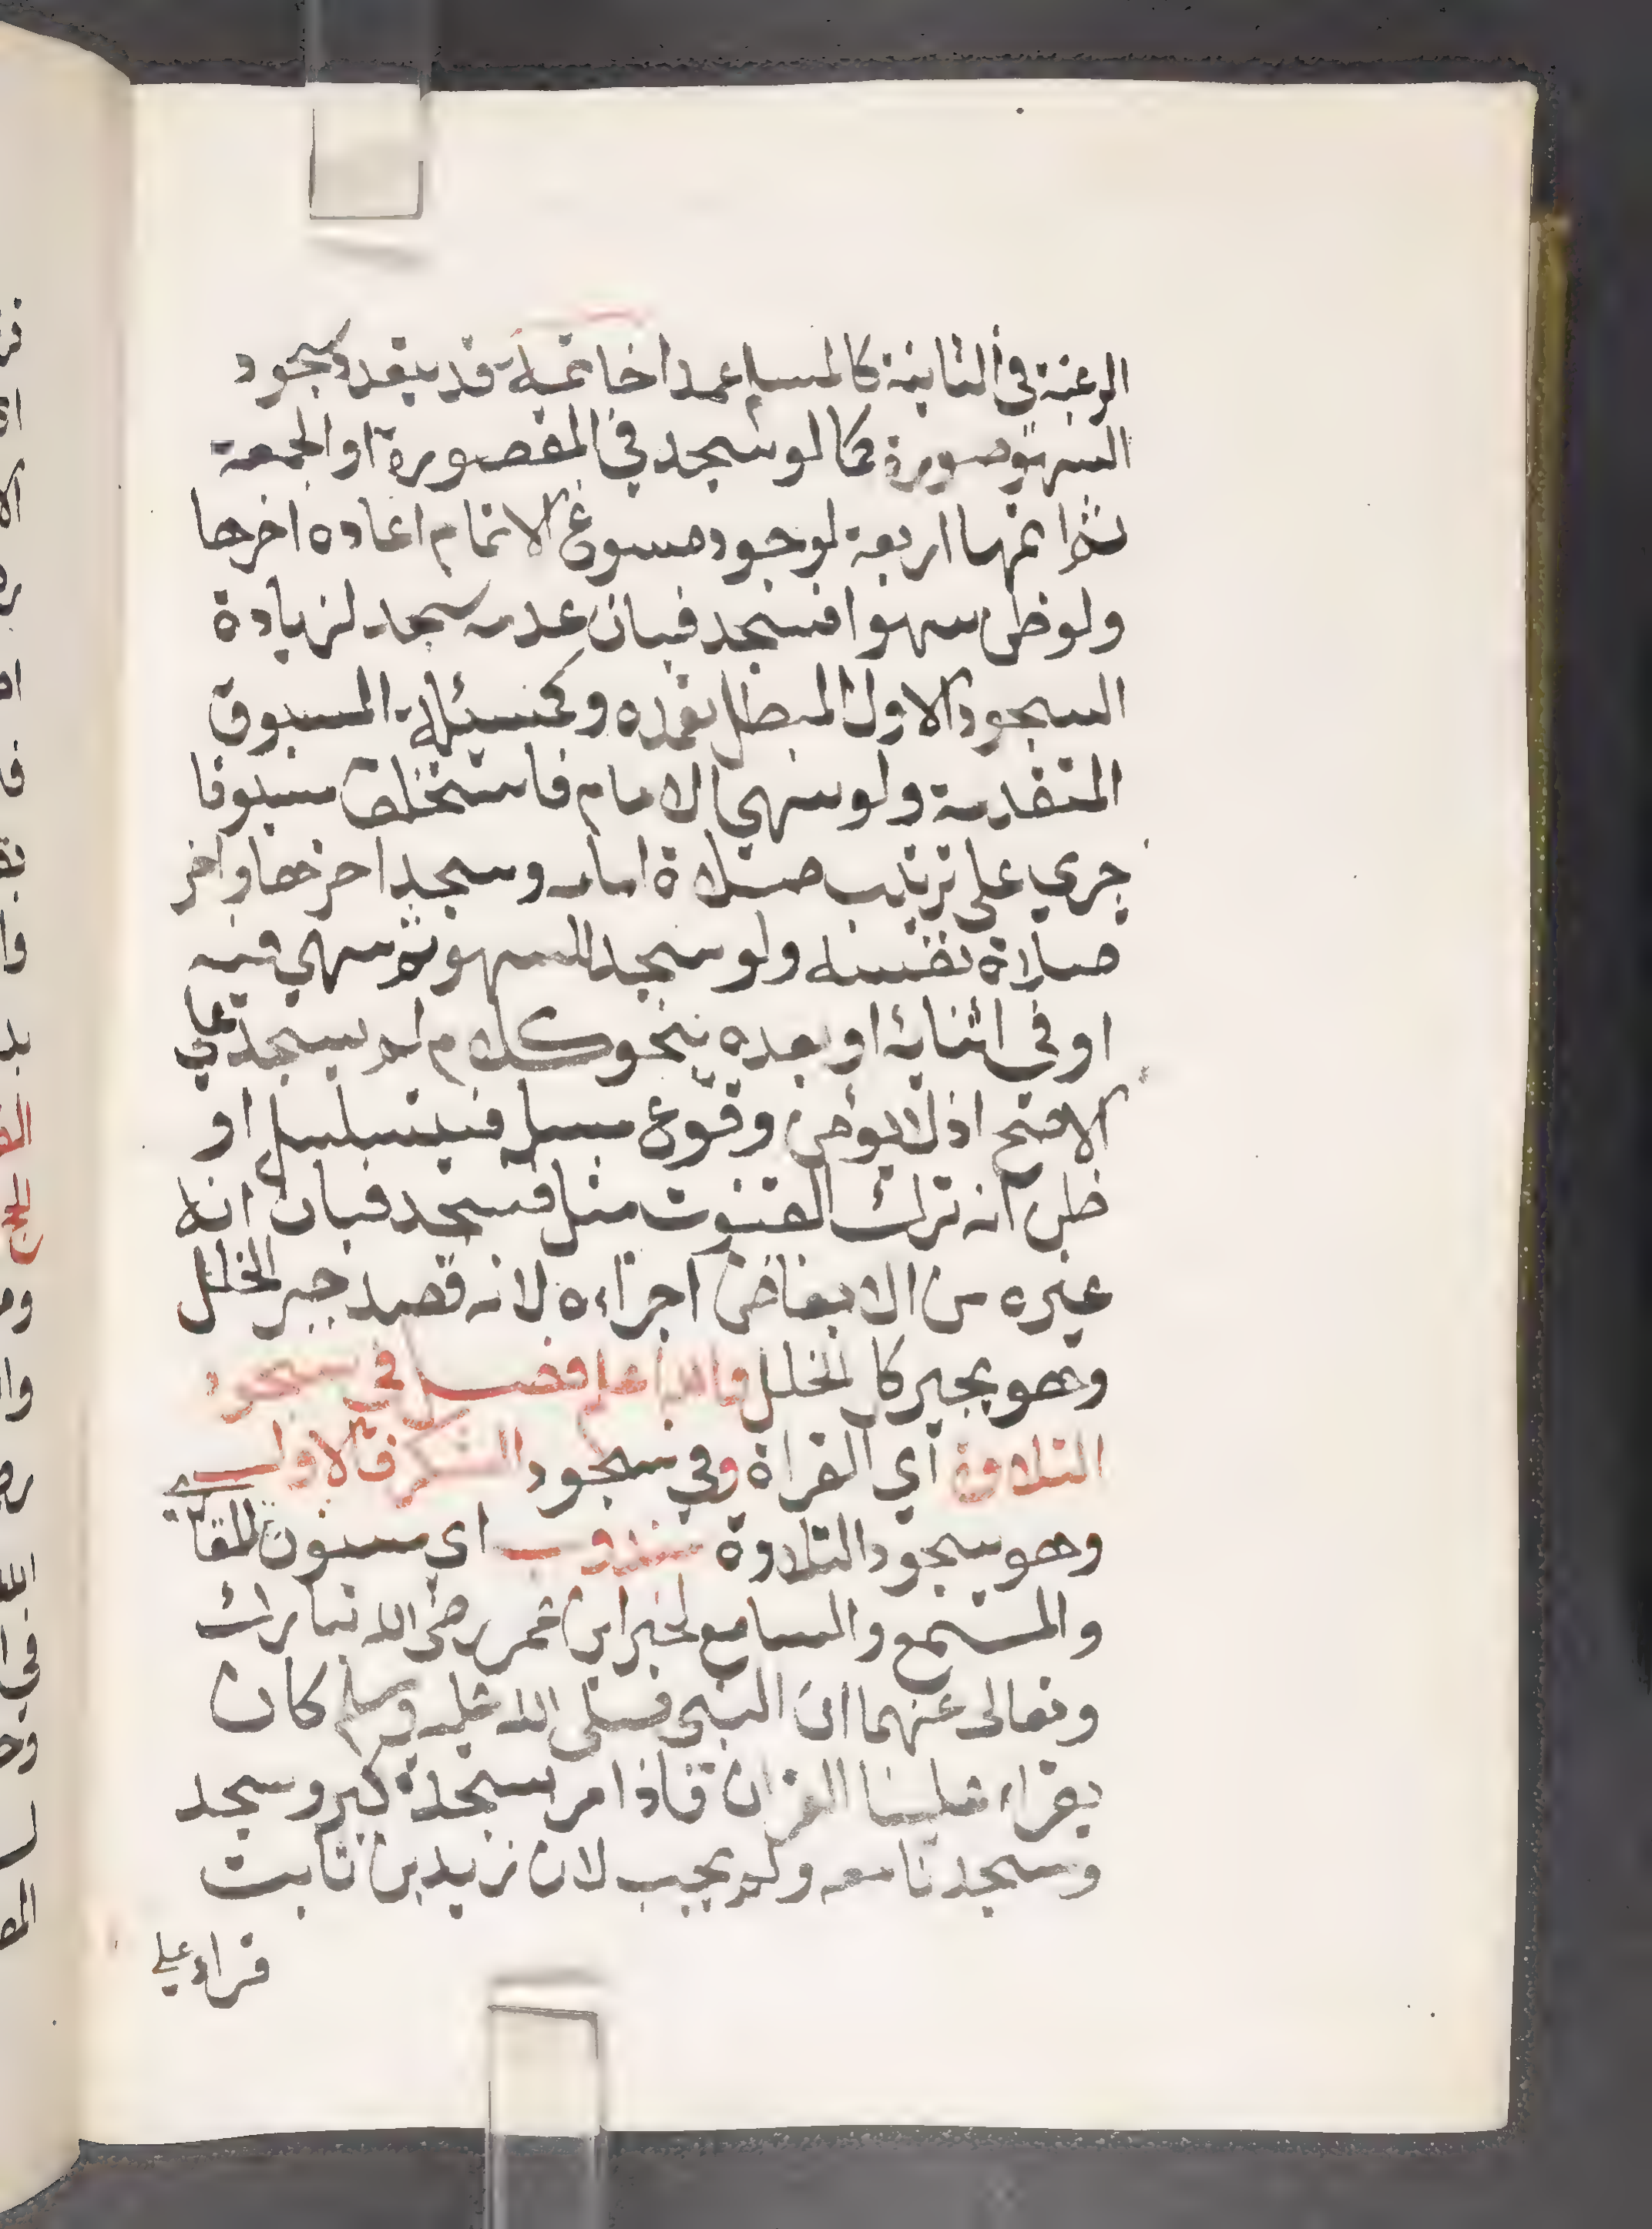 الرغبة في الثانية كالمسلم عمدا خاتمة قد يتعدد سجود
السهو صورة كما لو سجد في المقصورة او الجمعة
ثم اتمها اربعة لوجود مسوغ الاتمام اعاده اخرها
ولو ظن سهوا فسجد فبان عدمه سجد لزيادة
السجود الاول المبطل تعمده وكمسئلة المسبوق
المتقدمة ولو سهي الامام فاستخلف مسبوقا
جري علي ترتيب صلاة امامه وسجد اخرها واخر
صلاة نفسه ولو سجد للسهو ثم سهي فيه
او في اثنائه او بعده بنحو كلام لم يسجد علي
الاصح اذ لا يؤمن وقوع مثله فيتسلسل او
ظن انه ترك القنوت مثلا فسجد فبان انه
غيره من الابعاض اجزاءه لانه قصد جبر الخلل
وهو يجبر كل الخلل والله اعلم فصل في سجود
التلاوة اي القراة وفي سجود الشكر فالاول
وهو سجود التلاوة مندوب اي مسنون للقارئ
والمستمع والسامع لخبر ابن عمر رضي الله تبارك
وتعالى عنهما ان النبي صلى الله عليه وسلم كان
يقراء علينا القران فاذا مر بسجدة كبر وسجد
وسجدنا معه ولم يجب لان زيد بن ثابت
قراء علي